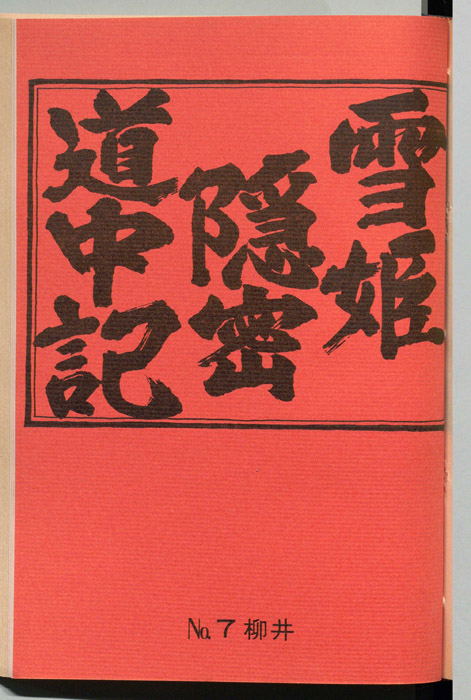 雪姫
隠密
道中記
No.7 柳井